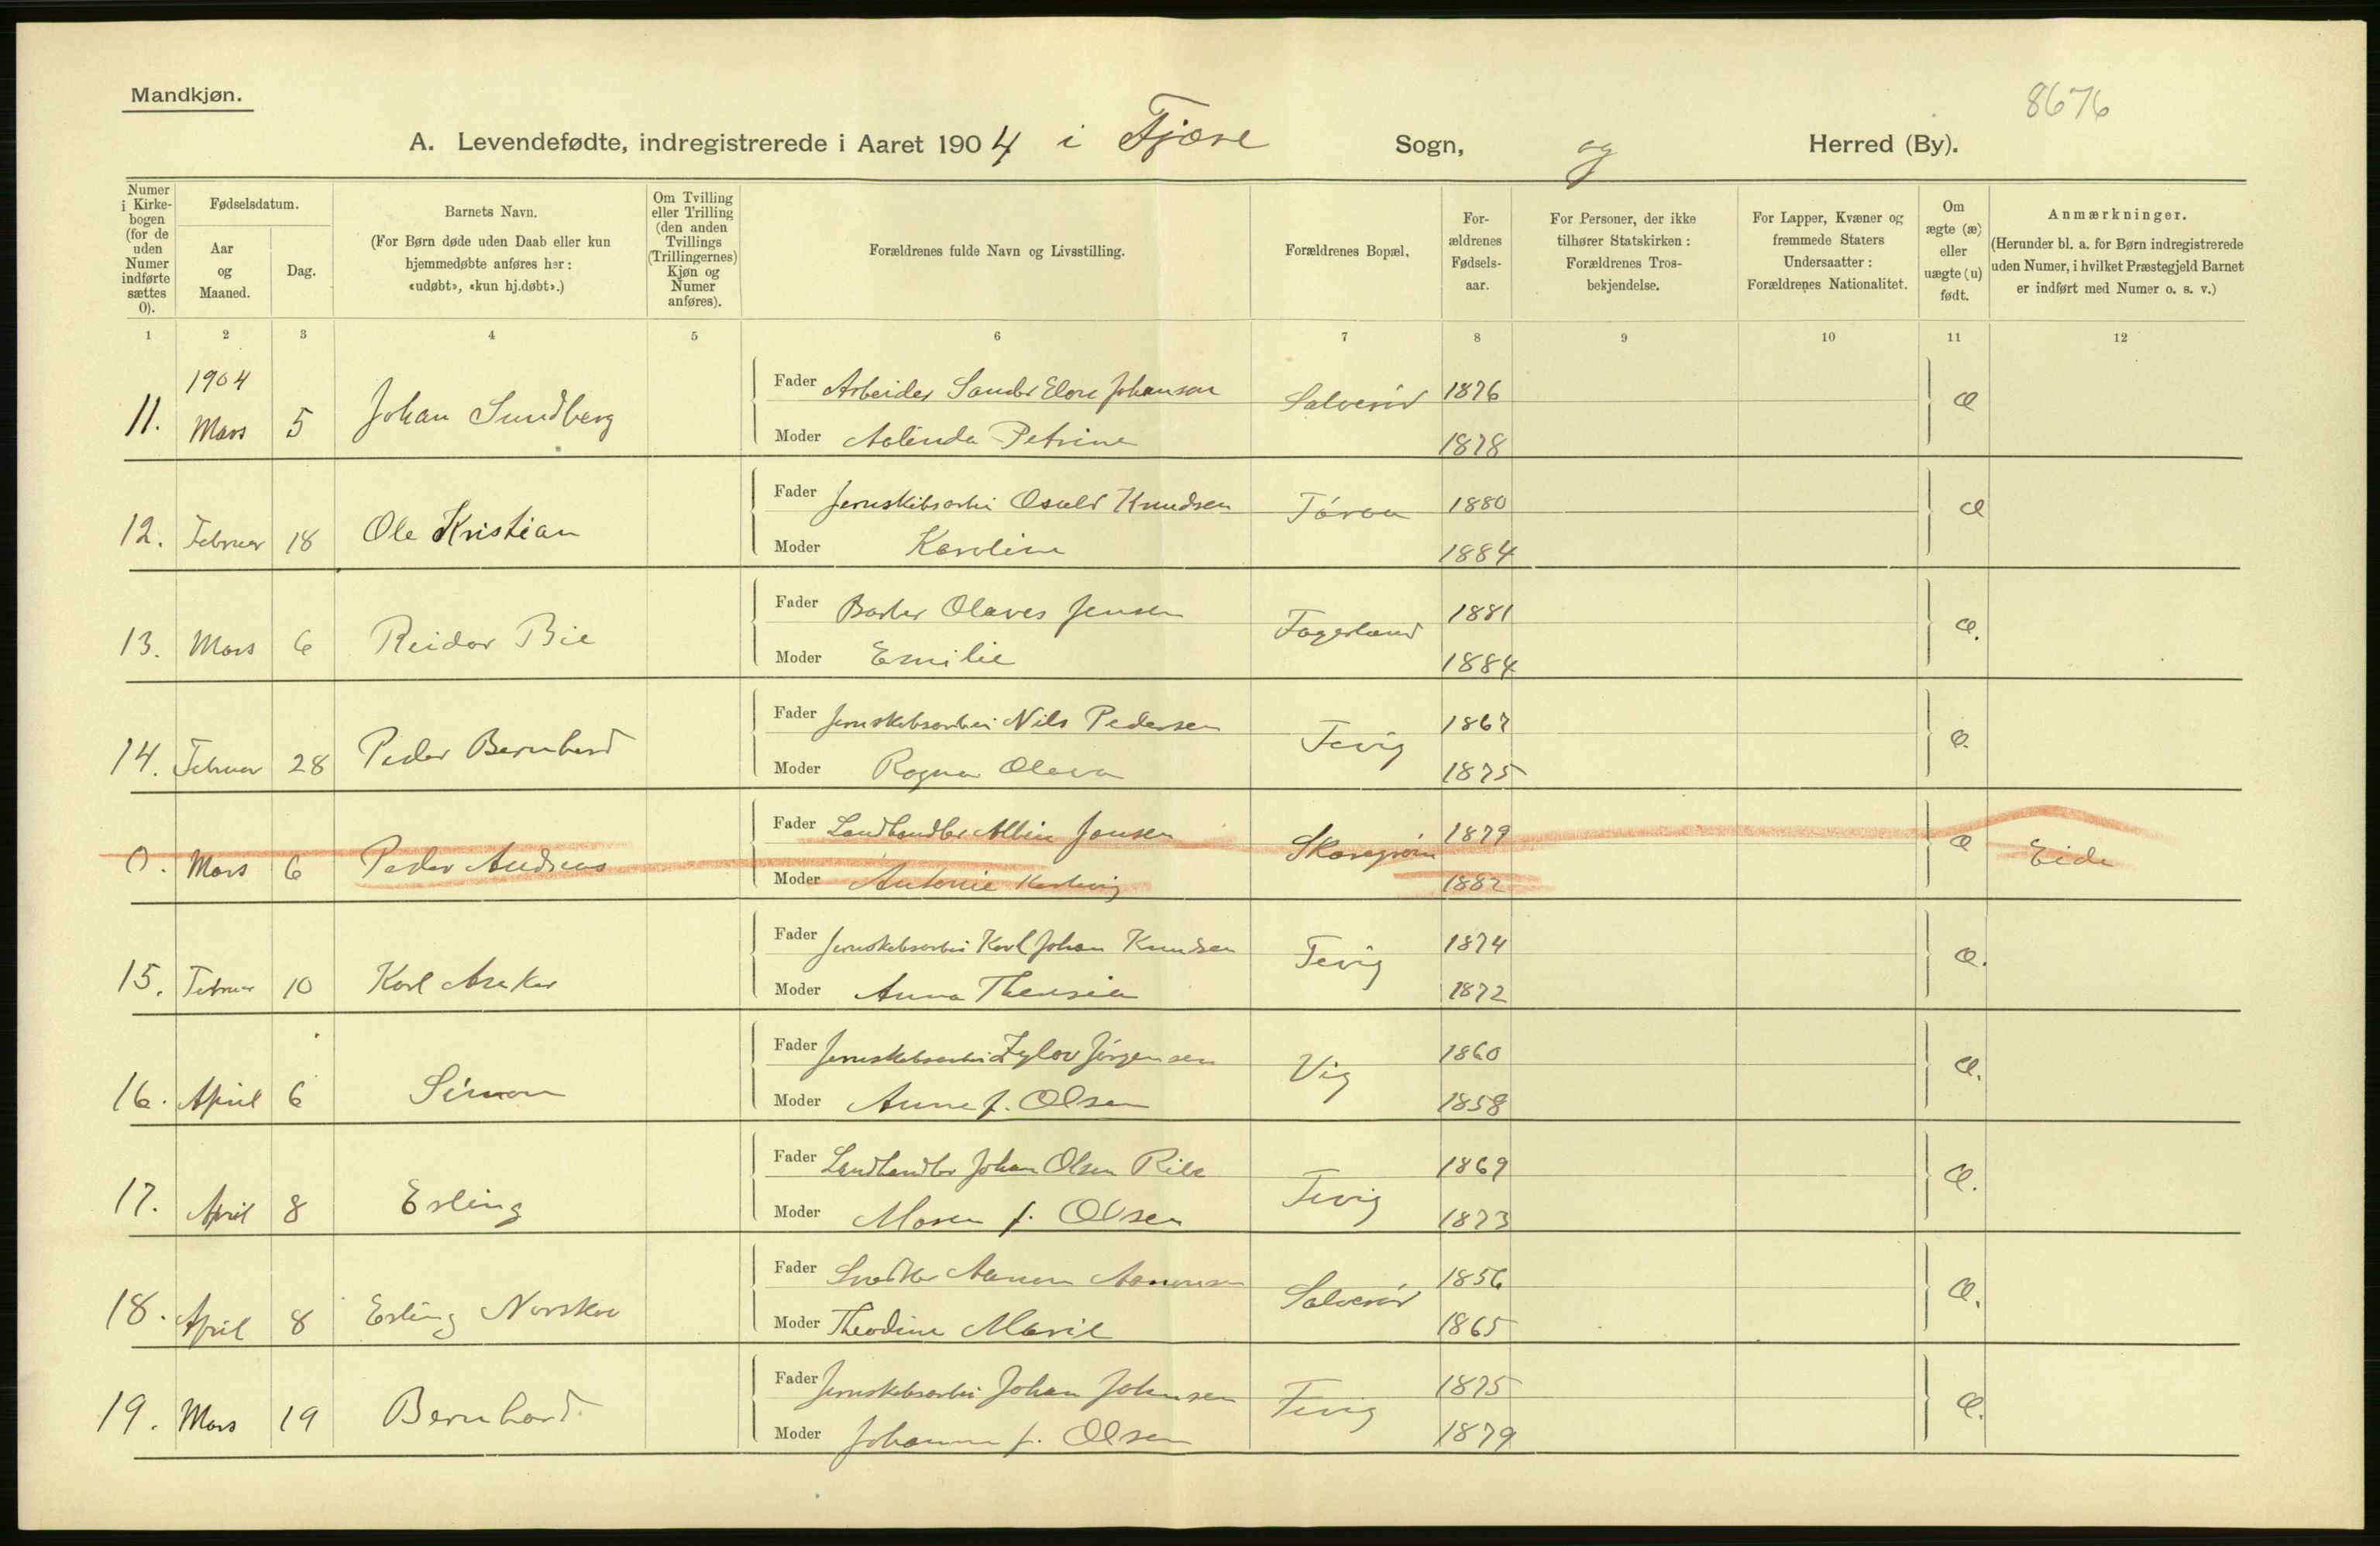 Mandkjøn.
8676
A. Levendefødte, indregistrerede i Aaret 1904 i Fjære Sogn, og Herred (By).
Numer i Kirkebogen (for de uden Numer indførte sættes 0).
Fødselsdatum.
Aar og Maaned.
Dag.
Barnets Navn.
(For Børn døde uden Daab eller kun hjemmedøbte anføres her: «udøbt», «kun hj.døbt».)
Om Tvilling eller Trilling (den anden Tvillings (Trillingernes) Kjøn og Numer anføres).
Forældrenes fulde Navn og Livsstilling.
Forældrenes Bopæl,
Forældrenes Fødselsaar.
For Personer, der ikke tilhører Statskirken: Forældrenes Trosbekjendelse.
For Lapper, Kvæner og fremmede Staters Undersaatter: Forældrenes Nationalitet.
Om ægte (æ) eller uægte (u) født.
Anmærkninger.
(Herunder bl. a. for Børn indregistrerede uden Numer, i hvilket Præstegjeld Barnet er indført med Numer o. s. v.)
1 2 3 4 5 6 7 8 9 10 11 12
1904
11. Mars 5 Johan Sundberg
Fader Arbeider Johansen 1876 æ
Moder Petrine 1878
12. Februar 18 Ole Kristian
Fader Jernskibsarbei Osvald Knudsen 1880 æ
Moder Karoline 1884
13. Mars 6 Reidar Bie
Fader Olaves Jensen Fagerland 1881 æ.
Moder Emilie 1884
14. Februar 28 Peder Bernhard
Fader Jernskibsarbei Nils Pedersen Fevig 1867 æ.
Moder Ragna Olava 1875
0. Mars 6 Peder Andreas
Fader Landhandler Albin Jansen 1879 æ Eide
Moder Antonie 1882
15. Februar 10 Karl
Fader Jernskibsarbei Karl Johan Knudsen Fevig 1874 æ.
Moder Anna Theresia 1872
16. April 6 Simon
Fader Jernskibsarbei Jörgensen Vig 1860 æ.
Moder Anne f. Olsen 1858
17. April 8 Erling
Fader Landhandler Johan Olsen Fevig 1869 æ.
Moder Maren f. Olsen 1873
18. April 8 Erling
Fader Snedker Aanon Aanonsen 1856 æ.
Moder Theodine Marie 1865
19. Mars 19 Bernhard
Fader Jernskibsarbei Johan Johnsen Fevig 1875 æ.
Moder Johanne f. Olsen 1879